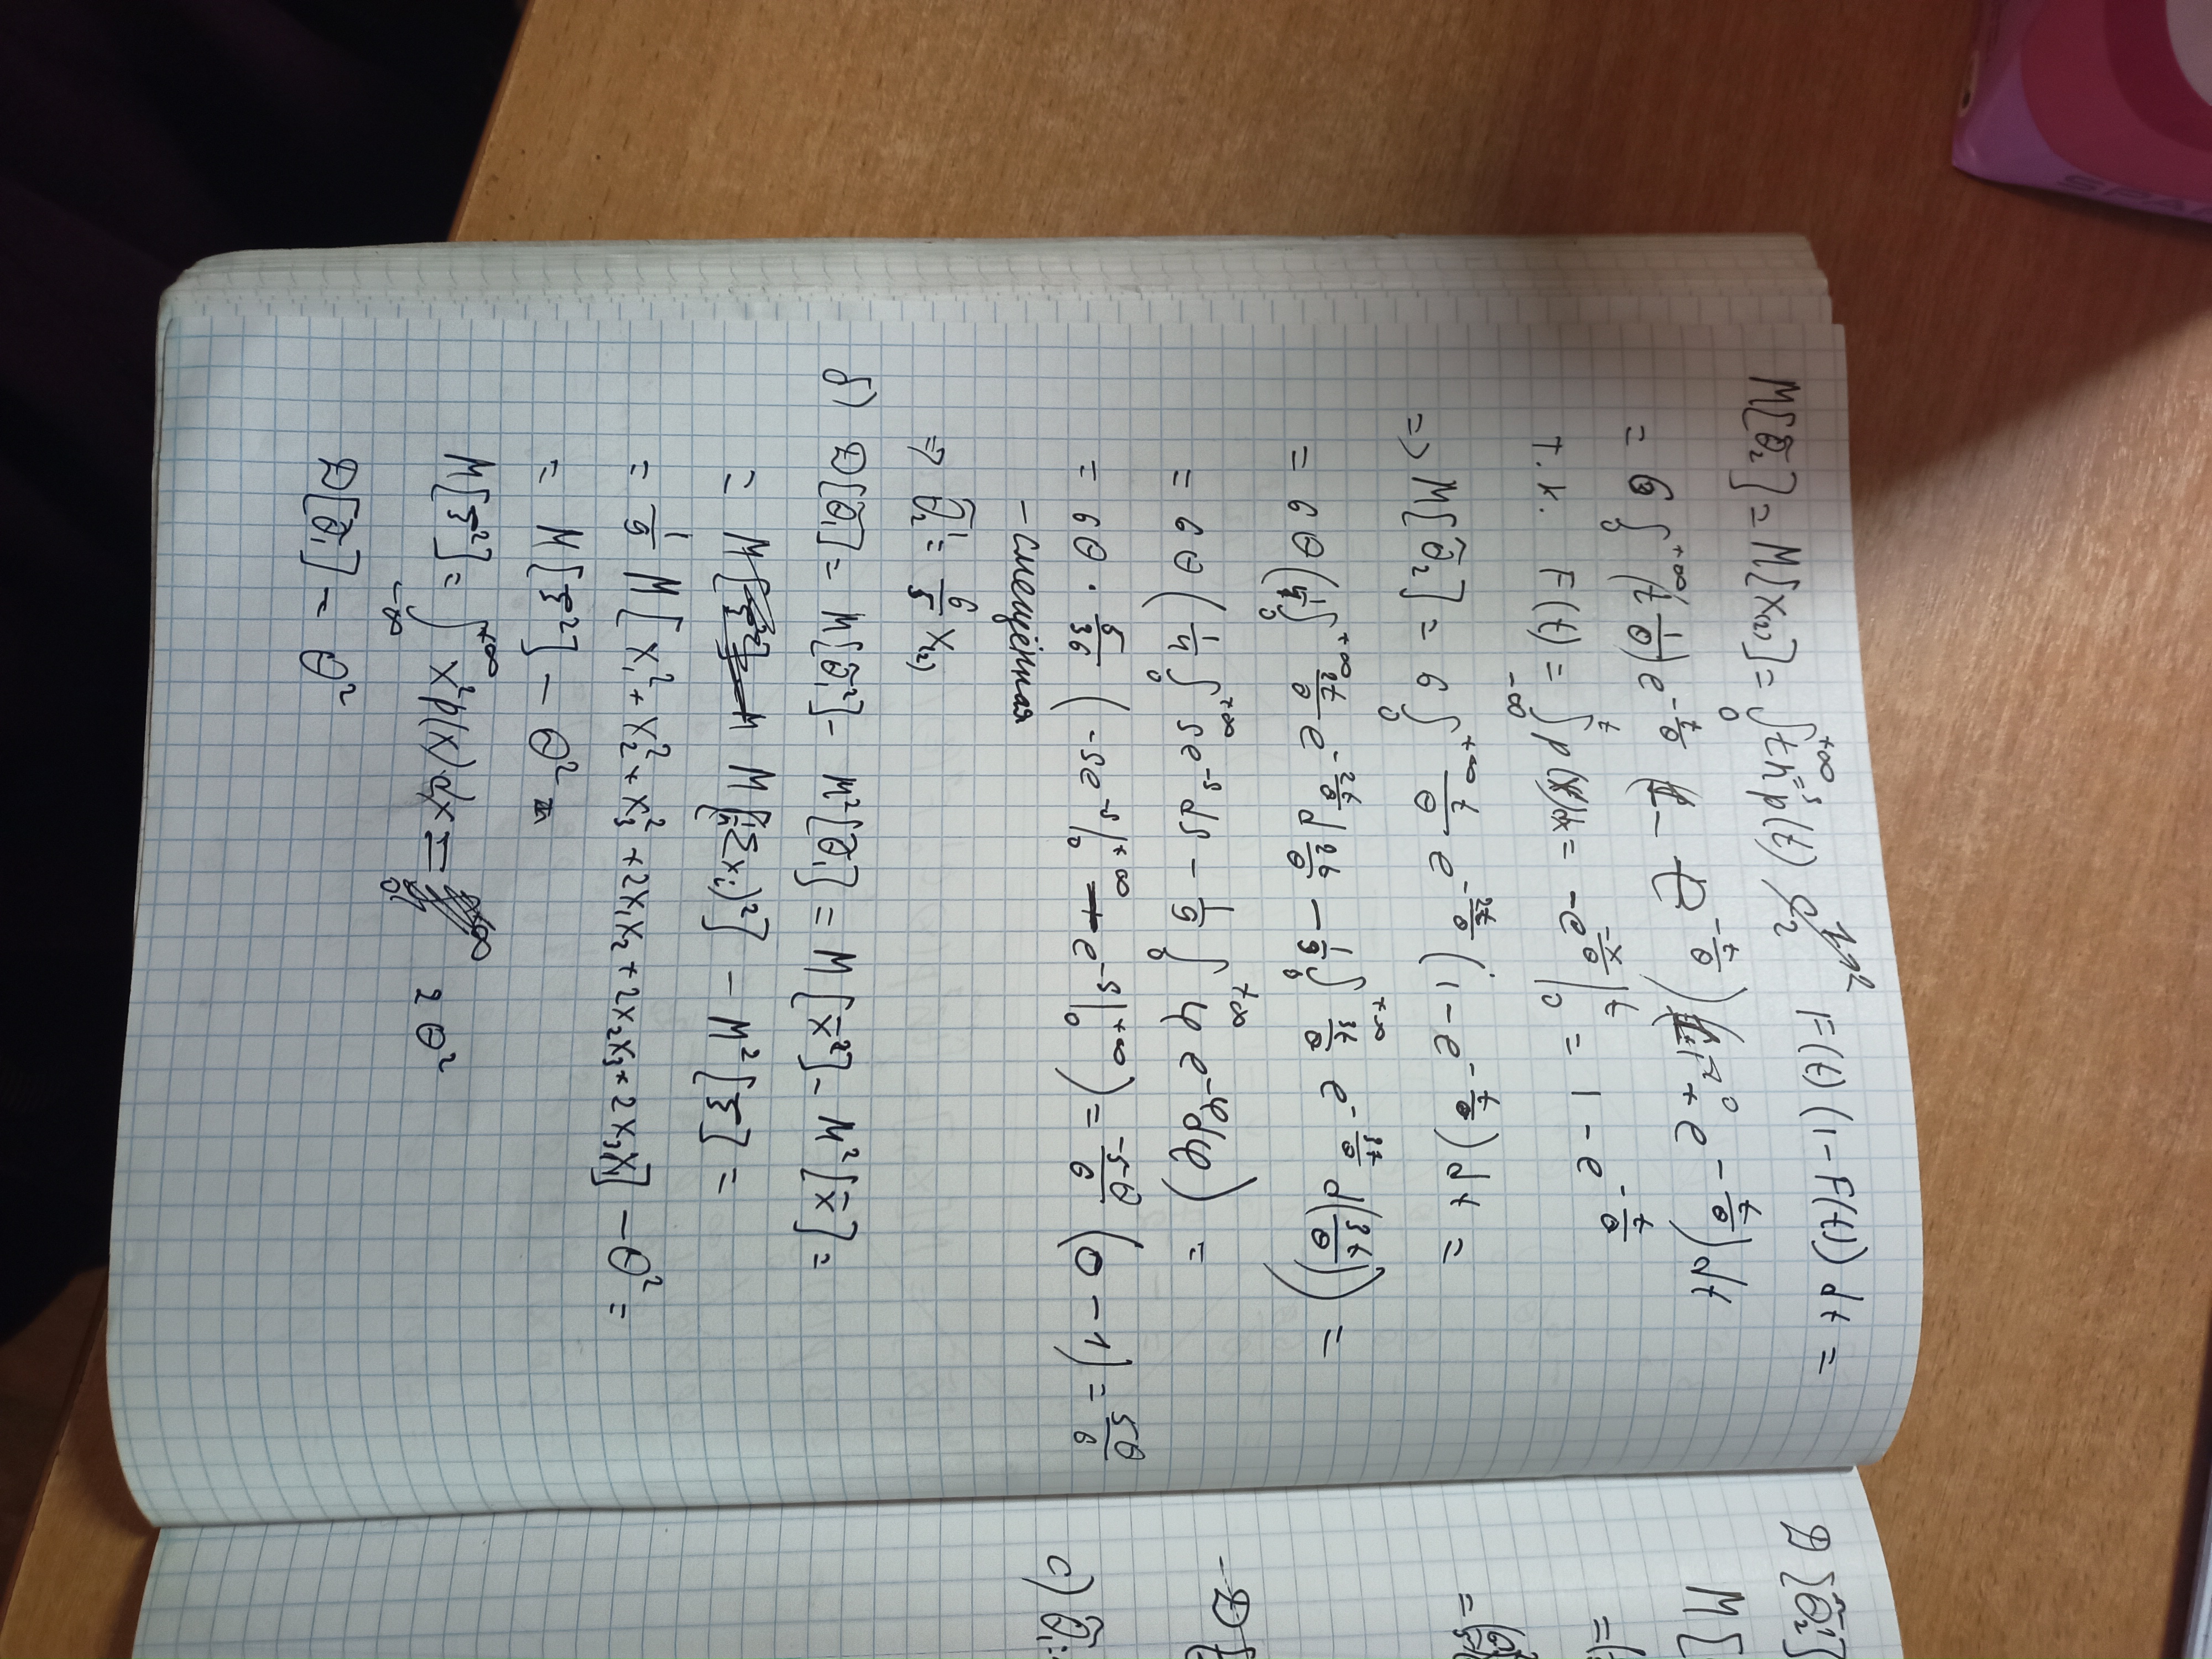 M[θ̃₂] = M[X₍₂₎] = ∫₀^{+∞} t n^{=3} p(t) C₂¹ ^{=2} F(t) (1 - F(t)) dt =
= 6 ∫₀^{+∞} (t 1/θ) e^{-t/θ} (1 - e^{-t/θ}) (1-1^{=0} + e^{-t/θ}) dt
т.к. F(t) = ∫_{-∞}^{t} p(x)dx = -e^{-x/θ} |₀^t = 1 - e^{-t/θ}
=> M[θ̃₂] = 6 ∫₀^{+∞} t/θ e^{-2t/θ} (1 - e^{-t/θ}) dt =
= 6 θ (1/4 ∫₀^{+∞} 2t/θ e^{-2t/θ} d 2t/θ - 1/9 ∫₀^{+∞} 3t/θ e^{-3t/θ} d(3t/θ)) =
= 6 θ (1/4 ∫₀^{+∞} s e^{-s} ds - 1/9 ∫₀^{+∞} φ e^{-φ} dφ) =
= 6θ · 5/36 (-s e^{-s} |₀^{+∞} - e^{-s} |₀^{+∞}) = -5θ/6 (0 - 1) = 5θ/6
- смещённая
=> θ̃₂¹ = 6/5 X₍₂₎
б) D[θ̃₁] = M[θ̃₁²] - M²[θ̃₁] = M[x̄²] - M²[x̄] =
= M[(1/n Σxᵢ)²] - M²[ξ] =
= 1/9 M[x₁² + x₂² + x₃² + 2x₁x₂ + 2x₂x₃ + 2x₃x₁] - θ² =
= M[ξ²] - θ² =
M[ξ²] = ∫_{-∞}^{+∞} x² p(x) dx = 2θ²
D[θ̃₁] = θ²
D[θ̃₂¹]
M[
=(
=
- D[
c) θ̃₁ =
SPA